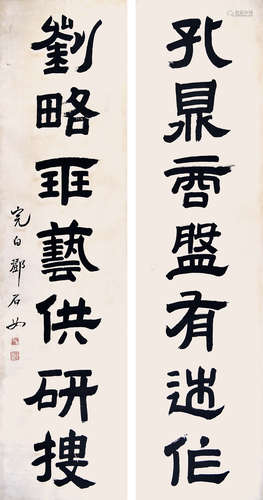 孔鼎商盤有述作
劉略班藝供研搜
完白鄧石如